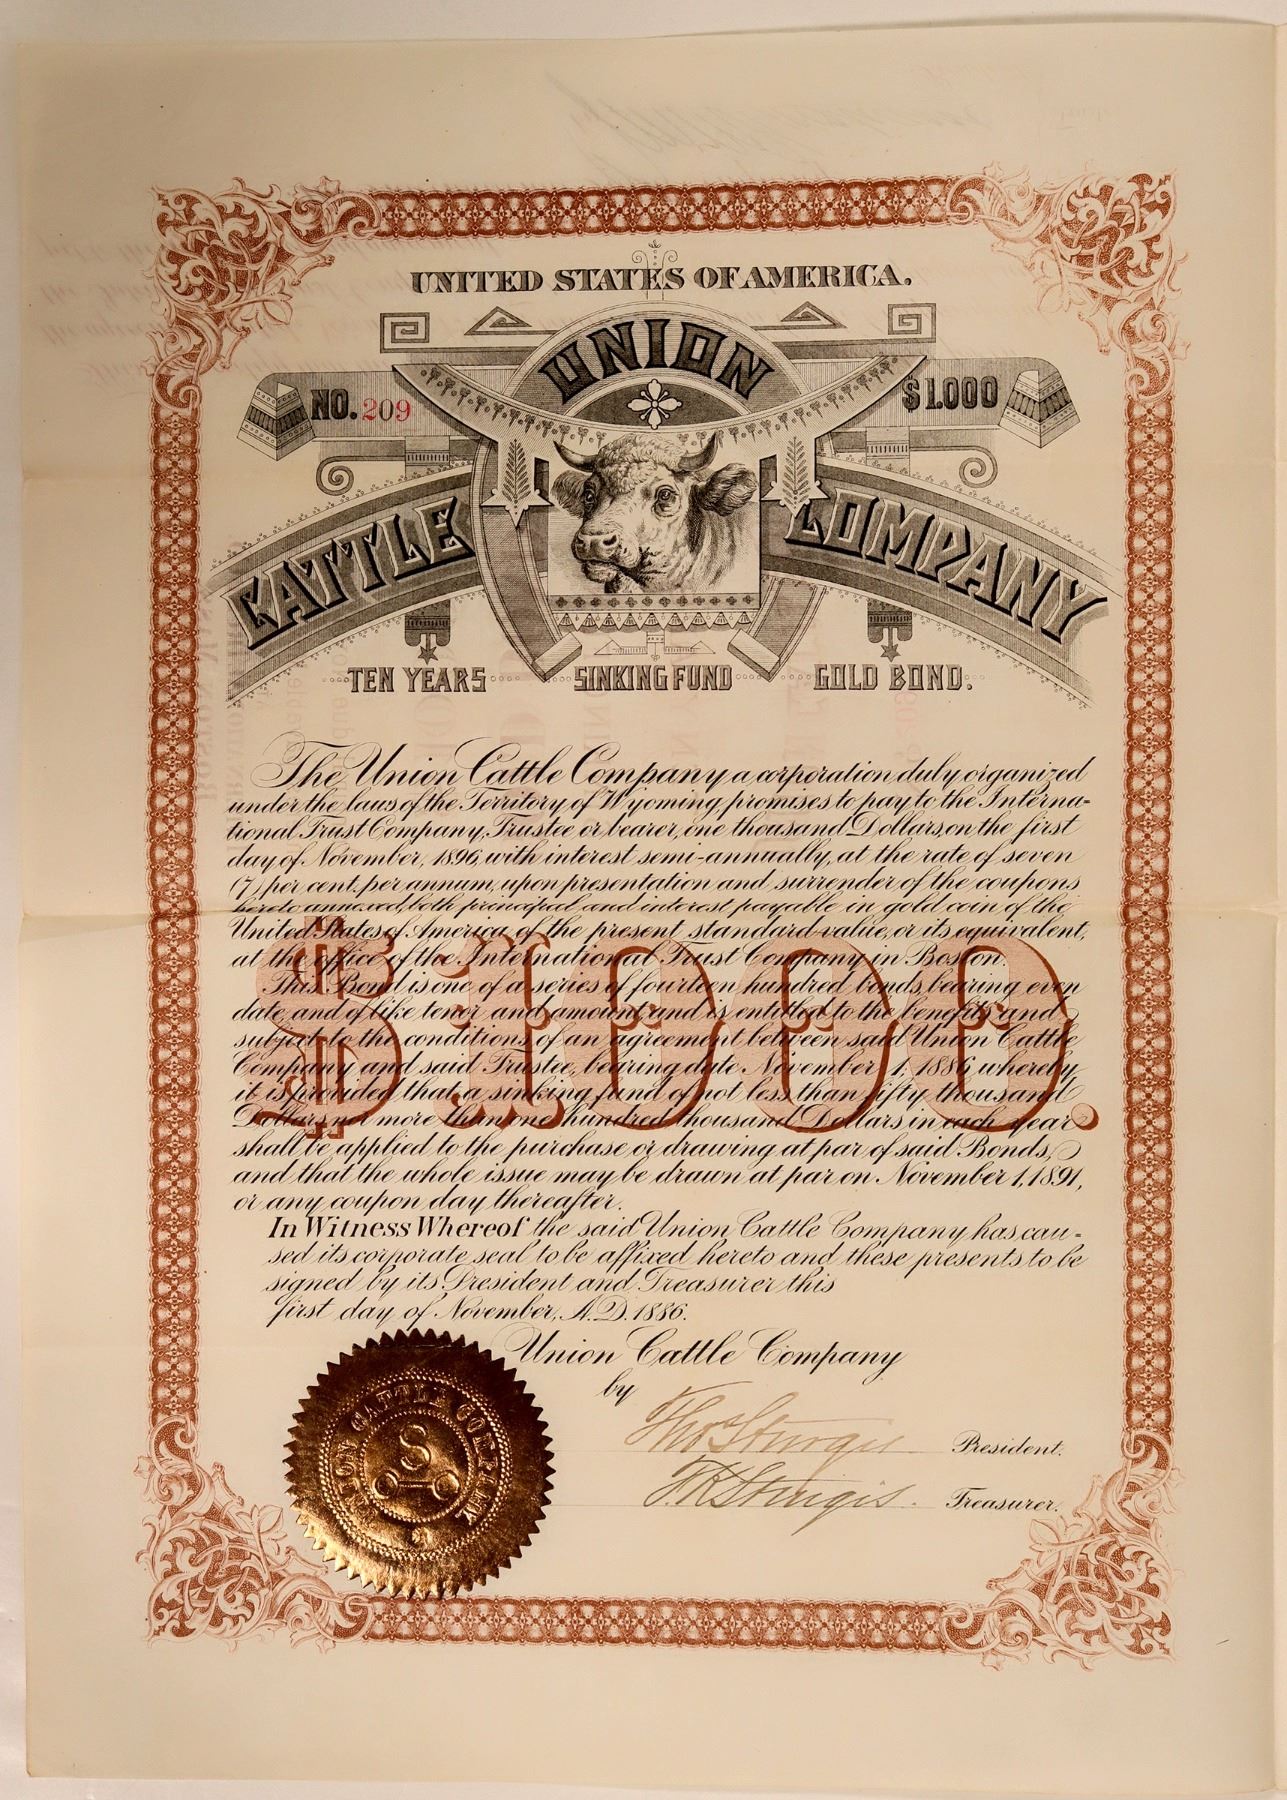 UNITED STATES OF AMERICA.
UNION
NO. 209
$1.000
CATTLE COMPANY
TEN YEARS SINKING FUND GOLD BOND.
The Union Cattle Company a corporation duly organized
under the laws of the Territory of Wyoming, promises to pay to the Interna=
tional Trust Company, Trustee or bearer, one thousand Dollars, on the first
day of November, 1896, with interest semi-annually, at the rate of seven
(7) per cent. per annum, upon presentation and surrender of the coupons
hereto annexed, both principal and interest payable in gold coin of the
United States of America, of the present standard value, or its equivalent,
at the office of the International Trust Company in Boston.
This Bond is one of a series of fourteen hundred bonds, bearing even
date, and of like tenor and amount, and is entitled to the benefits and
subject to the conditions of an agreement between said Union Cattle
Company and said Trustee, bearing date November 1, 1886, whereby
it is provided that a sinking fund of not less than fifty thousand
Dollars, nor more than one hundred thousand Dollars in each year
shall be applied to the purchase or drawing at par of said Bonds,
and that the whole issue may be drawn at par on November 1, 1891,
or any coupon day thereafter.
$1000.
In Witness Whereof the said Union Cattle Company has cau=
sed its corporate seal to be affixed hereto and these presents to be
signed by its President and Treasurer this
first day of November, A.D. 1886.
Union Cattle Company
by
Thos Sturgis President.
F.K Sturgis. Treasurer.
UNION CATTLE COMPANY
S